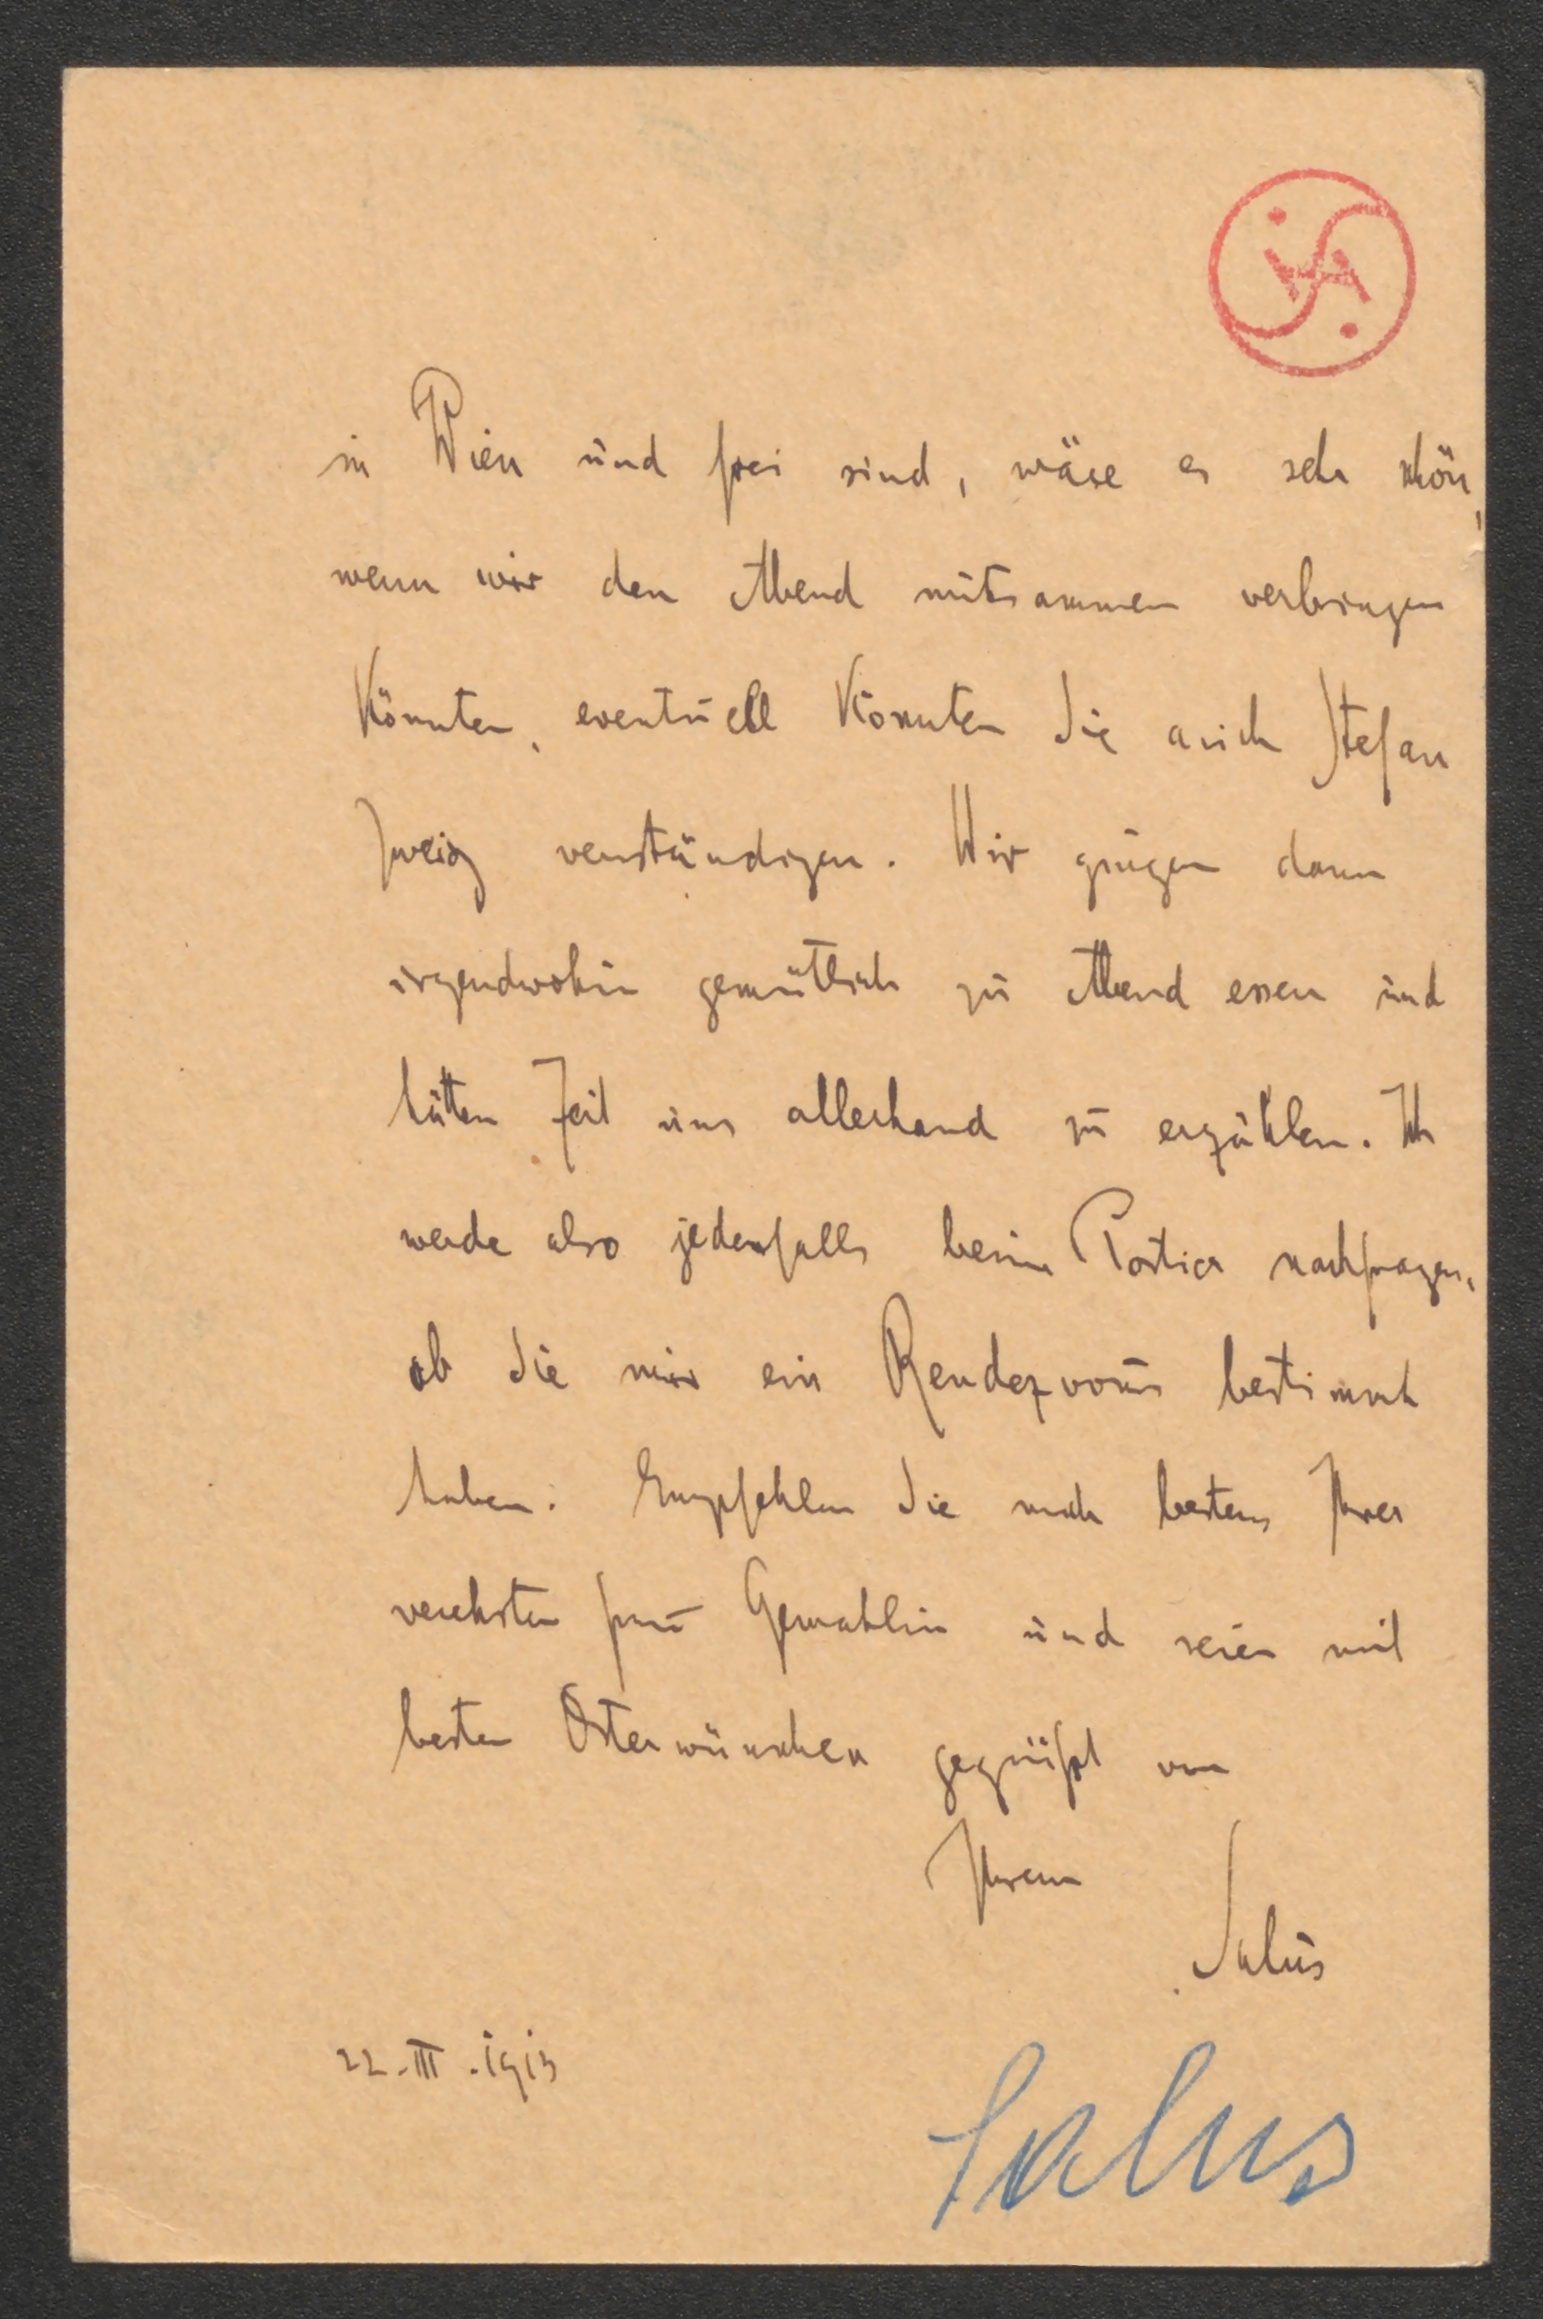 in Wien und frei sind, wäre es sehr schön,
wenn wir den Abend mitsammen verbringen
könnten, eventuell könnten Sie auch Stefan
Zweig verständigen. Wir gingen dann
irgendwohin gemütlich zu Abend essen und
hätten Zeit uns allerhand zu erzählen. Ich
werde also jedenfalls beim Portier nachfragen,
ob Sie mir ein Rendezvous bestimmt
haben. Empfehlen Sie mich bestens Ihrer
verehrten Frau Gemahlin und seien mit
besten Osterwünschen gegrüßt von
Ihrem
Salus
22.III.1913
Salus